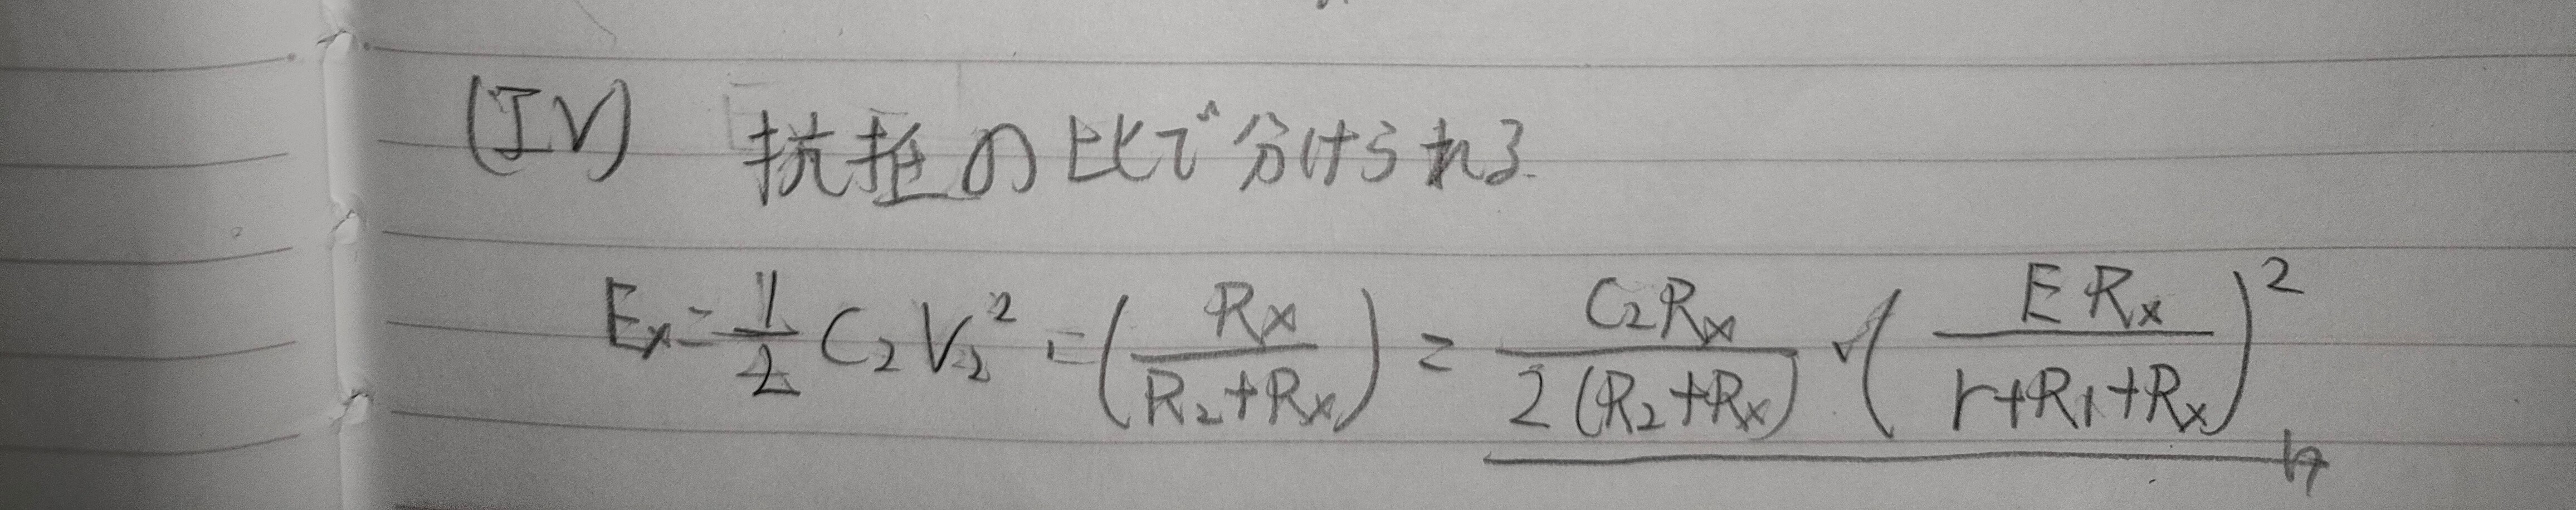 (IV) 抗抵の比で分けられる
Ex = 1/2 C₂V₂² = (Rx/(R₂+Rx)) = C₂Rx/(2(R₂+Rx)) · (ERx/(r+R₁+Rx))²